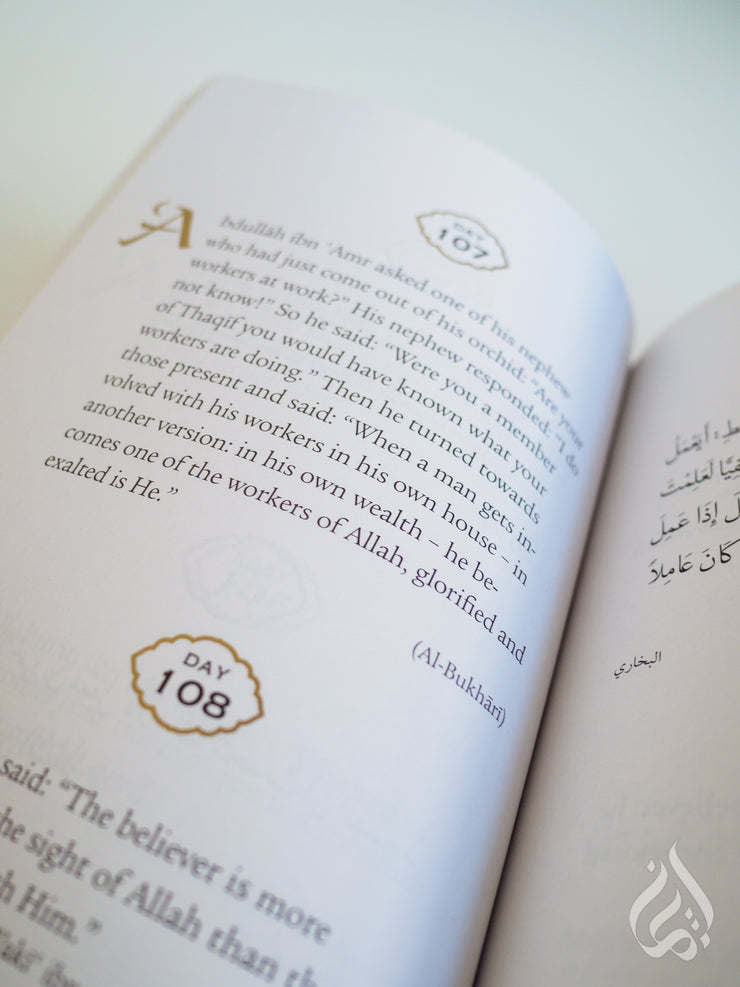 DAY
107
Abdullāh ibn 'Amr asked one of his nephew
who had just come out of his orchid: “Are your
workers at work?” His nephew responded: “I do
not know!” So he said: “Were you a member
of Thaqīf you would have known what your
workers are doing.” Then he turned towards
those present and said: “When a man gets in-
volved with his workers in his own house – in
another version: in his own wealth – he be-
comes one of the workers of Allah, glorified and
exalted is He.”
(Al-Bukhārī)
DAY
108
said: “The believer is more
the sight of Allah than
Him.”
أيعمل
لعلمت
إذا عمل
كان عاملاً
البخاري